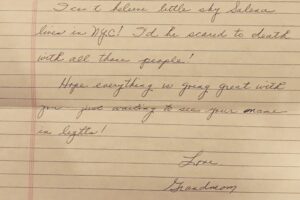 I can't believe little shy Salena
lives in NYC! I'd be scared to death
with all those people!
Hope everything is going great with
you - just waiting to see your name
in lights!
Love
Grandmom